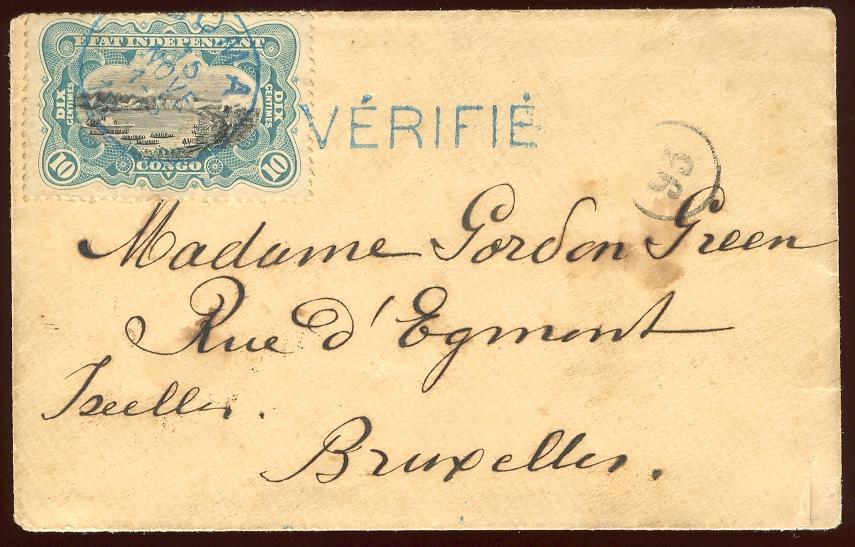 ETAT INDEPENDANT
DIX CENTIMES
DIX CENTIMES
10
CONGO
10
BOMA
15
NOVE
VÉRIFIÉ
93
Madame Gordon Green
Rue d'Egmont
Ixelles.
Bruxelles.